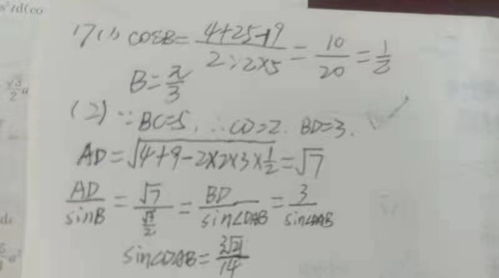 17(1) cosB = (4+25-19)/(2×2×5) = 10/20 = 1/2
B = π/3
(2) ∵ BC=5, ∴ CD=2. BD=3.
AD = √(4+9-2×2×3×1/2) = √7
AD/sinB = √7/(√3/2) = BD/sin∠DAB = 3/sin∠DAB
sin∠DAB = 3√21/14